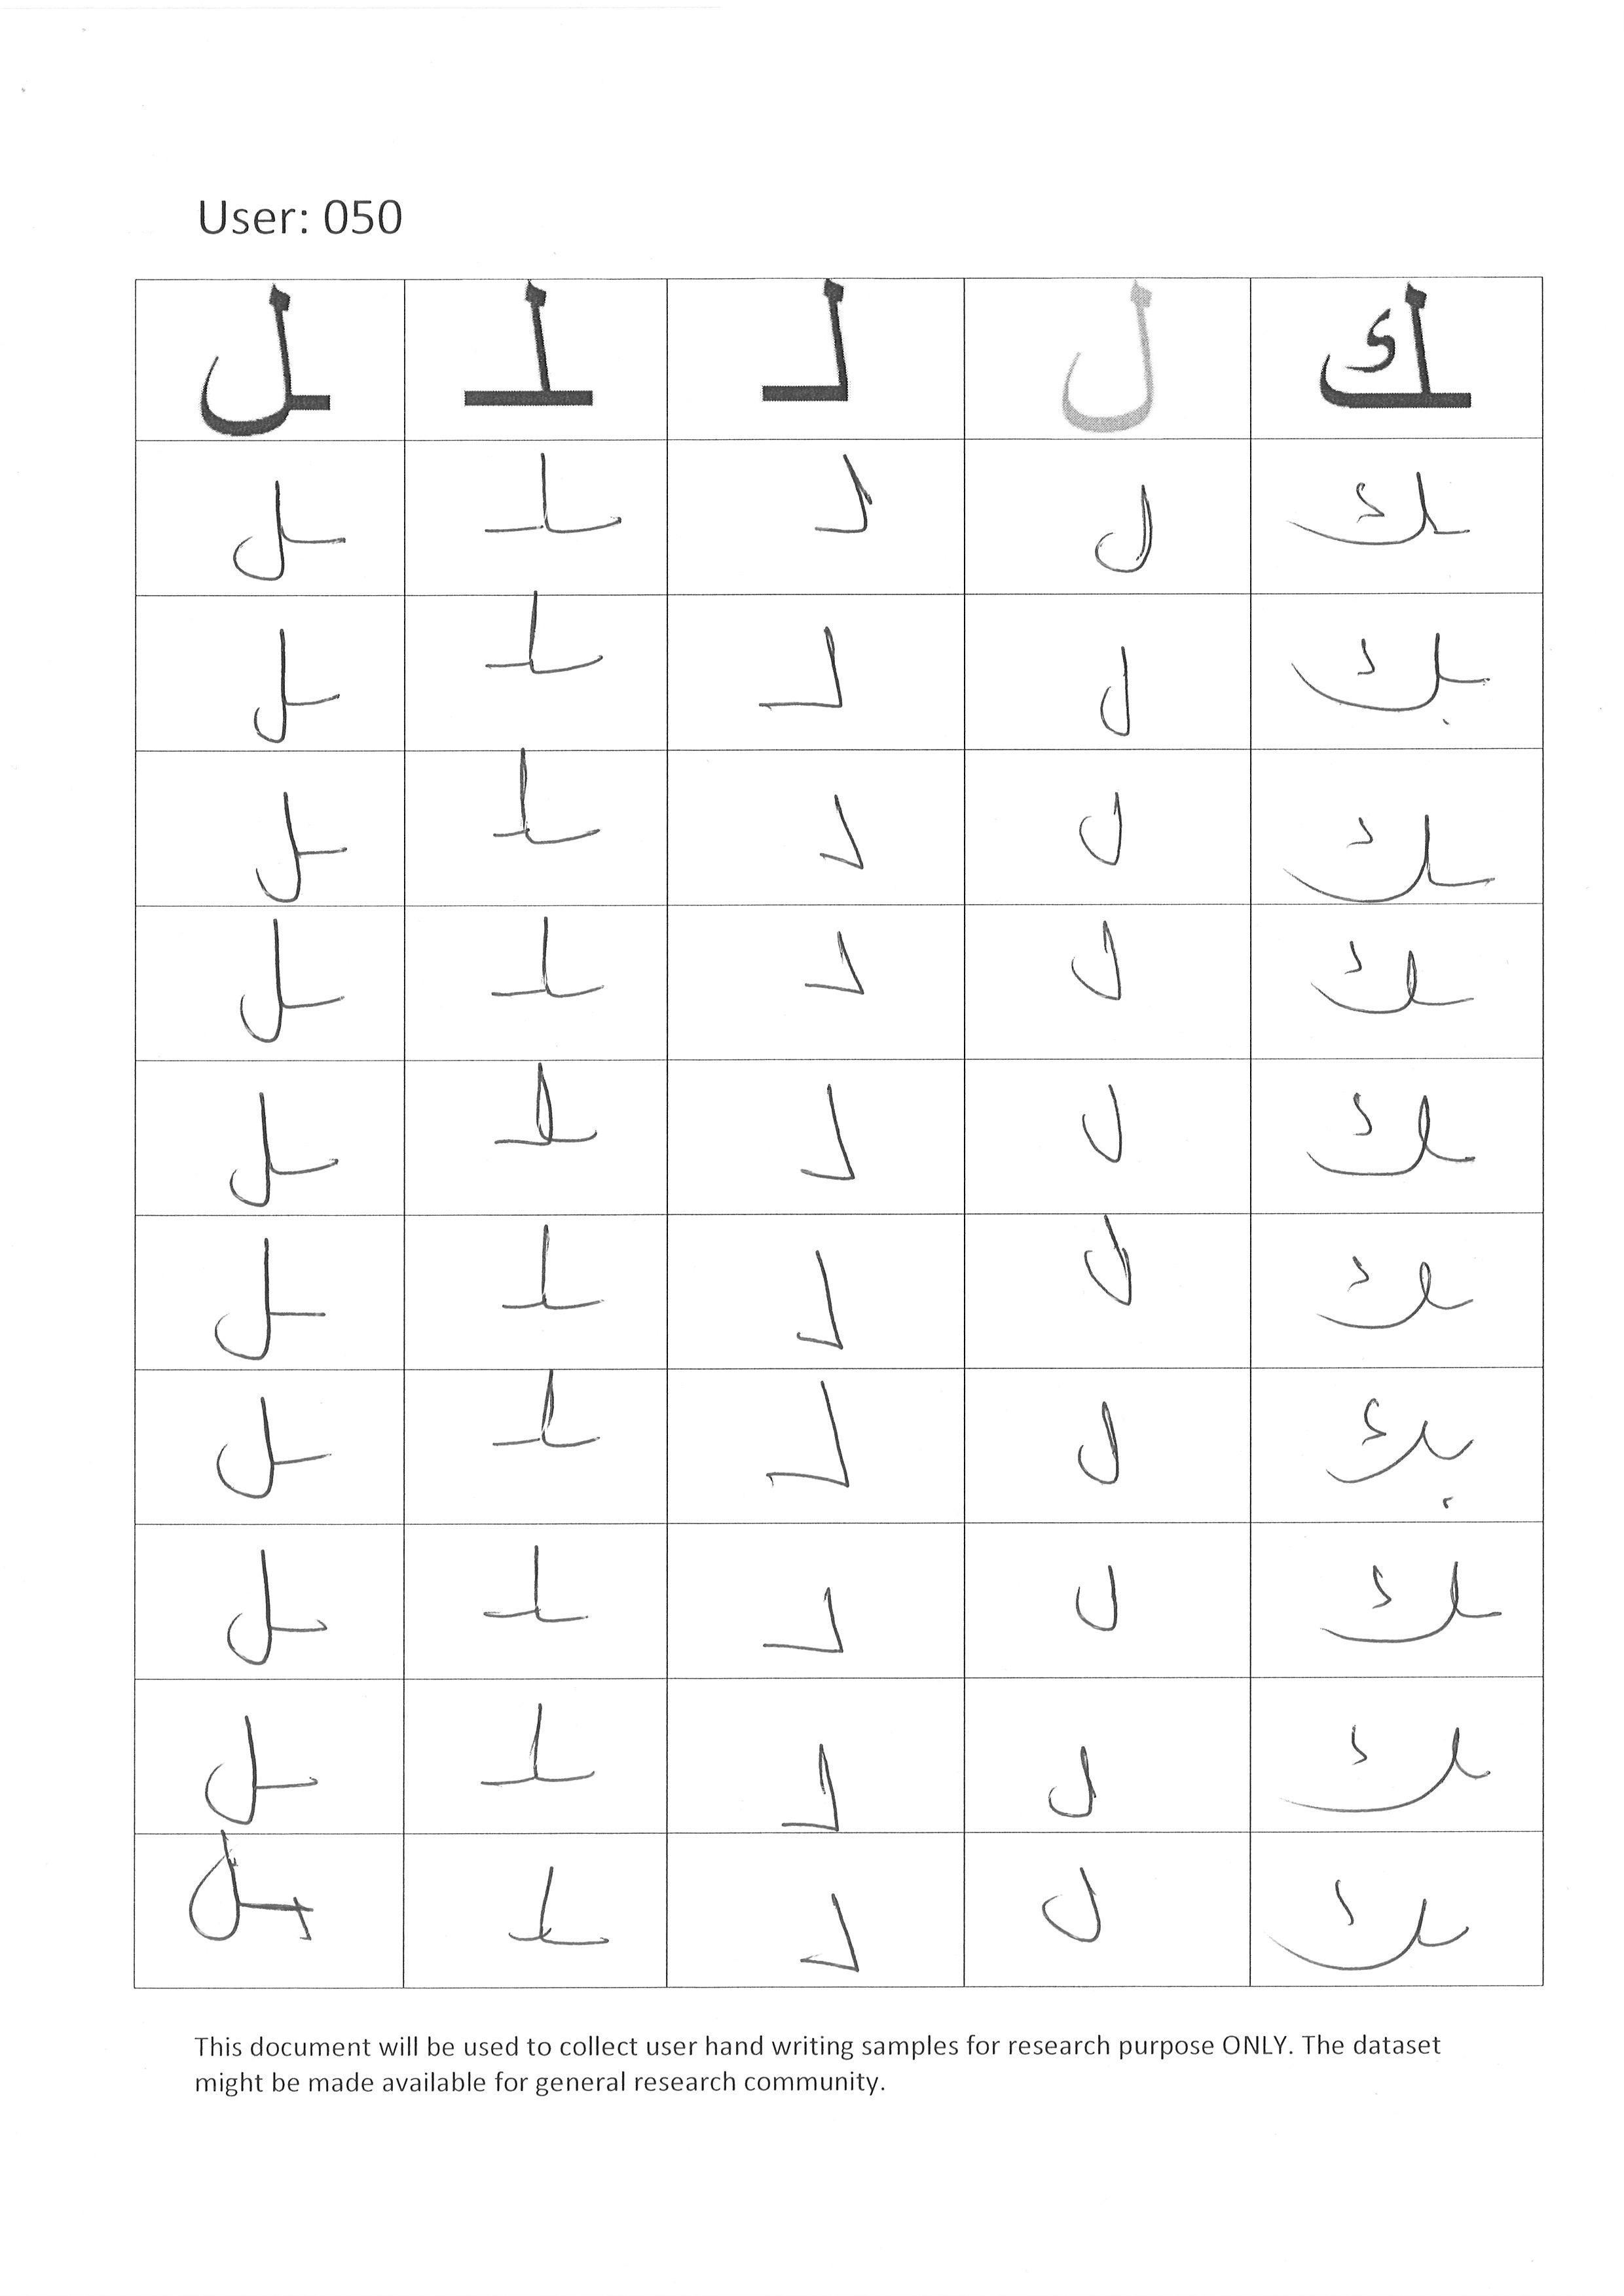 User: 050
ـل ـلـ لـ ل ـك
ـل ـلـ لـ ل ـك
ـل ـلـ لـ ل ـك
ـل ـلـ لـ ل ـك
ـل ـلـ لـ ل ـك
ـل ـلـ لـ ل ـك
ـل ـلـ لـ ل ـك
ـل ـلـ لـ ل ـك
ـل ـلـ لـ ل ـك
ـل ـلـ لـ ل ـك
ـل ـلـ لـ ل ـك
This document will be used to collect user hand writing samples for research purpose ONLY. The dataset
might be made available for general research community.